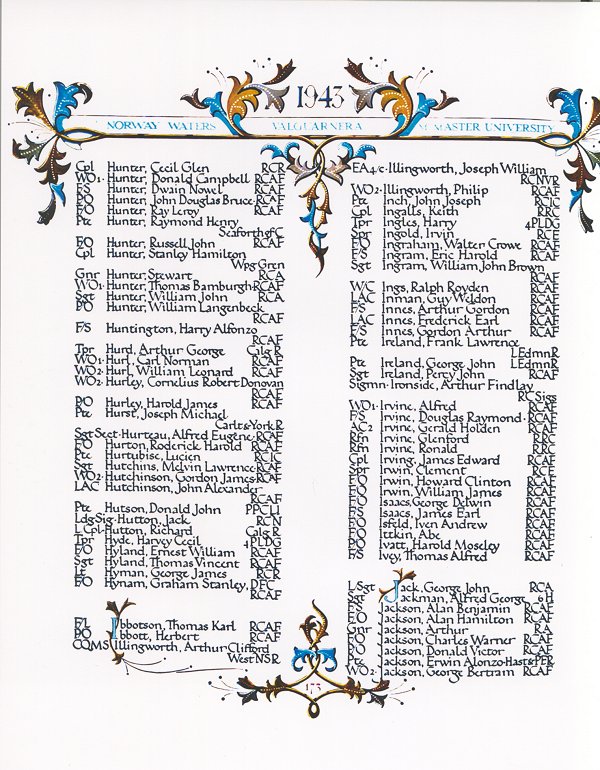 1943
NORWAY WATERS VALGUARNERA McMASTER UNIVERSITY
Cpl Hunter, Cecil Glen RCR
WO1 · Hunter, Donald Campbell RCAF
F/S Hunter, Dwain Nowel RCAF
P/O Hunter, John Douglas Bruce · RCAF
F/O Hunter, Ray Leroy RCAF
Pte Hunter, Raymond Henry
Seaforth of C
F/O Hunter, Russell John RCAF
Cpl Hunter, Stanley Hamilton
Wpg Gren
Gnr Hunter, Stewart RCA
WO1 · Hunter, Thomas Bamburgh · RCAF
Sgt Hunter, William John RCA
P/O Hunter, William Langenbeck
RCAF
F/S Huntington, Harry Alfonzo
RCAF
Tpr Hurd, Arthur George Calg R
WO1 · Hurl, Carl Norman RCAF
WO2 · Hurl, William Leonard RCAF
WO2 · Hurley, Cornelius Robert Donovan
RCAF
P/O Hurley, Harold James RCAF
Pte Hurst, Joseph Michael
Carlt & York R
Sgt Sect · Hurteau, Alfred Eugene · RCAF
F/O Hurton, Roderick Harold RCAF
Pte Hurtubise, Lucien RCIC
Sgt Hutchins, Melvin Lawrence RCAF
WO2 · Hutchinson, Gordon James · RCAF
LAC Hutchinson, John Alexander
RCAF
Pte Hutson, Donald John PPCLI
Ldg Sig · Hutton, Jack RCN
L Cpl · Hutton, Richard Calg R
Tpr Hyde, Harvey Cecil 4 PLDG
F/O Hyland, Ernest William RCAF
Sgt Hyland, Thomas Vincent RCAF
Lt Hyman, George James RCR
F/O Hynam, Graham Stanley, DFC
RCAF
F/L Ibbotson, Thomas Karl RCAF
P/O Ibbott, Herbert RCAF
CQMS Illingworth, Arthur Clifford
West NSR
EA4/c · Illingworth, Joseph William
RCNVR
WO2 · Illingworth, Philip RCAF
Pte Inch, John Joseph RCIC
Cpl Ingalls, Keith RRC
Tpr Ingles, Harry 4 PLDG
Spr Ingold, Irvin RCE
F/O Ingraham, Walter Crowe RCAF
F/S Ingram, Eric Harold RCAF
Sgt Ingram, William John Brown
RCAF
W/C Ings, Ralph Royden RCAF
LAC Inman, Guy Weldon RCAF
F/S Innes, Arthur Gordon RCAF
LAC Innes, Frederick Earl RCAF
F/S Innes, Gordon Arthur RCAF
Pte Ireland, Frank Lawrence
L Edmn R
Pte Ireland, George John L Edmn R
Sgt Ireland, Percy John RCAF
Sigmn · Ironside, Arthur Findlay
RC Sigs
WO1 · Irvine, Alfred RCAF
F/S Irvine, Douglas Raymond · RCAF
AC2 Irvine, Gerald Holden RCAF
Rfn Irvine, Glenford RRC
Rfn Irvine, Ronald RRC
Cpl Irving, James Edward RCAF
Spr Irwin, Clement RCE
F/O Irwin, Howard Clinton RCAF
F/O Irwin, William James RCAF
F/O Isaacs, George Delwin RCAF
F/S Isaacs, James Earl RCAF
F/O Isfeld, Iven Andrew RCAF
F/O Ittkin, Abe RCAF
P/O Ivatt, Harold Moseley RCAF
F/S Ivey, Thomas Alfred RCAF
L Sgt Jack, George John RCA
Sgt Jackman, Alfred George 6 H
F/S Jackson, Alan Benjamin RCAF
F/O Jackson, Alan Hamilton RCAF
Gnr Jackson, Arthur RA
F/O Jackson, Charles Warner RCAF
P/O Jackson, Donald Victor RCAF
Pte Jackson, Erwin Alonzo · Hast & PER
WO2 · Jackson, George Bertram RCAF
173